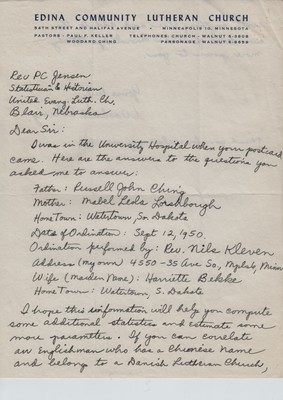 EDINA COMMUNITY LUTHERAN CHURCH
54TH STREET AND HALIFAX AVENUE • MINNEAPOLIS 10, MINNESOTA
PASTORS - PAUL F. KELLER
WOODARD CHING
TELEPHONES: CHURCH - WALNUT
PARSONAGE - WALNUT
Rev PC Jensen
Statistician & Historian
United Evang. Luth. Ch.
Blair, Nebraska
Dear Sir:
I was in the University Hospital when your postcard
came. Here are the answers to the questions you
asked me to answer:
Father: Russell John Ching
Mother: Mabel Leola
Home Town: Watertown, So. Dakota
Date of Ordination: Sept 12, 1950.
Ordination performed by: Rev. Nils Kleven
Address (my own) 4550-35 Ave So., Mpls 6, Minn
Wife (Maiden Name): Harriette Bekke
Home Town: Watertown, S. Dakota
I hope this information will help you compute
some additional statistics and estimate some
more parameters. If you can correlate
an Englishman who has a Chinese name
and belong to a Danish Lutheran Church,